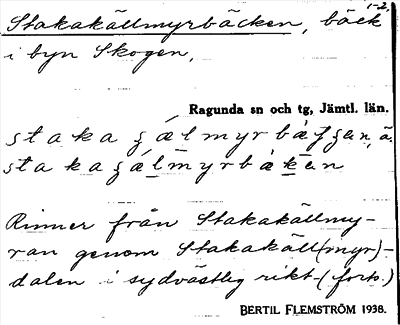 1-2,
Stakakällmyrbäcken, bäck
i byn Skogen,
Ragunda sn och tg, Jämtl. län.
staka
staka
Rinner från Stakakällmy-
ran genom Stakakäll(myr)-
dalen i sydvästlig rikt- (forts.)
BERTIL FLEMSTRÖM 1938.